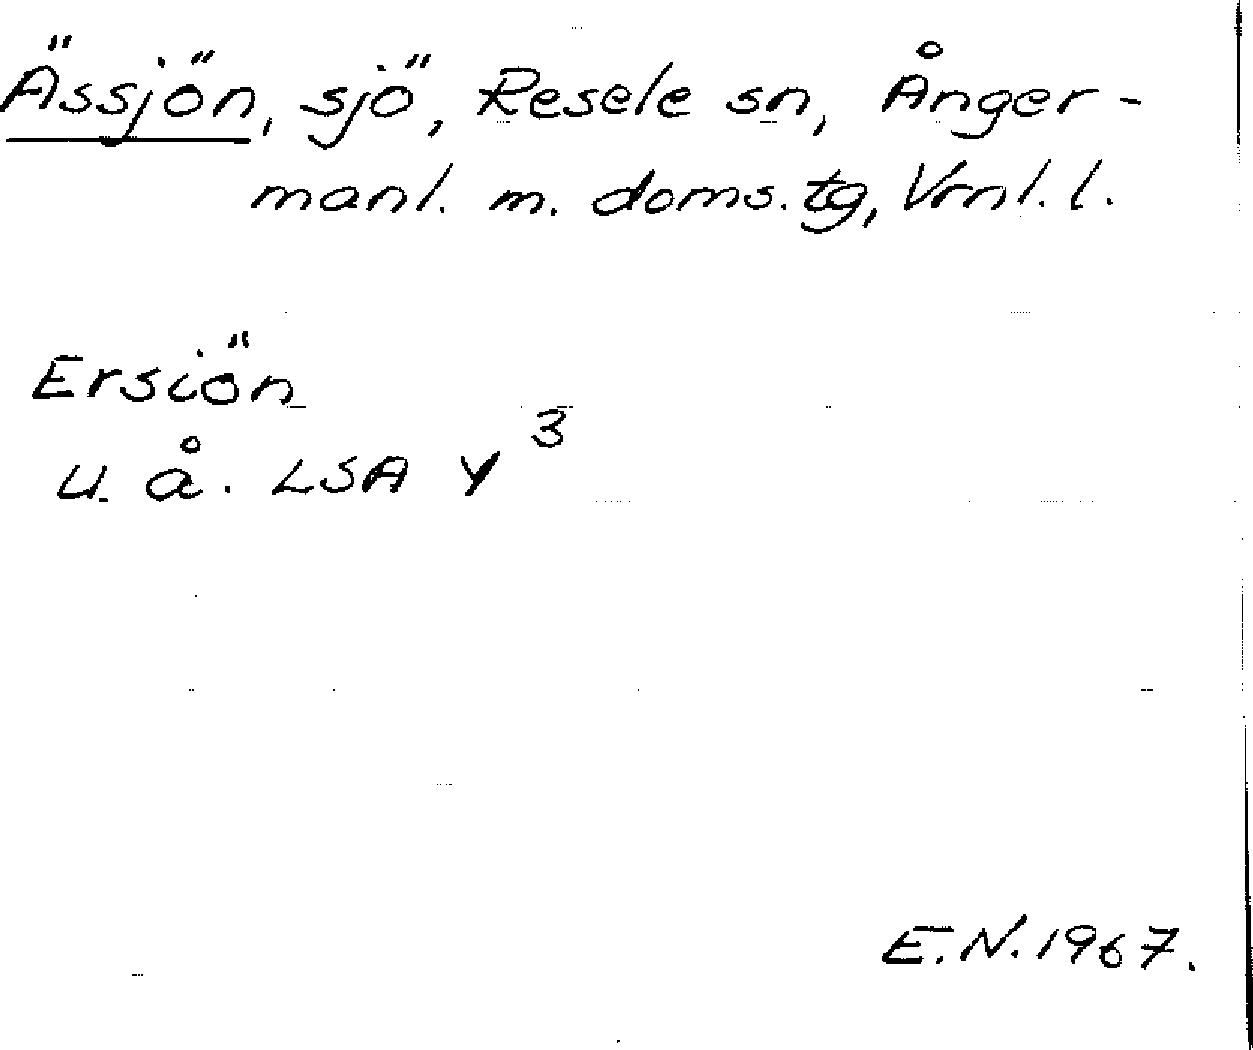 Ässjön, sjö, Resele sn, Ånger-
manl. m. doms. tg, Vrnl. l.
Ersiön
u. å. LSA Y 3
E.N. 1967.